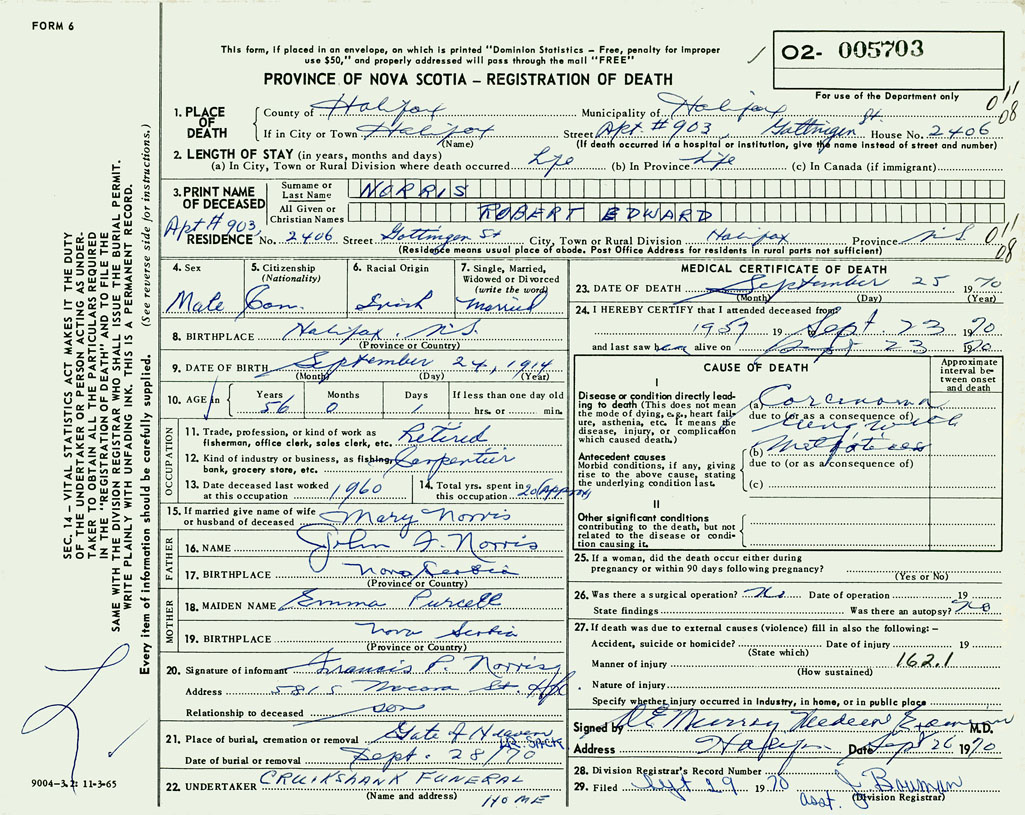 FORM 6
This form, if placed in an envelope, on which is printed "Dominion Statistics – Free, penalty for improper
use $50," and properly addressed will pass through the mail "FREE"
O2- 005703
PROVINCE OF NOVA SCOTIA – REGISTRATION OF DEATH
For use of the Department only
011
08
1. PLACE OF DEATH
County of Halifax Municipality of Halifax
If in City or Town Halifax Street Apt #903, Gottingen St. House No. 2406
(Name) (If death occurred in a hospital or institution, give the name instead of street and number)
2. LENGTH OF STAY (in years, months and days)
(a) In City, Town or Rural Division where death occurred life (b) In Province life (c) In Canada (if immigrant)
3. PRINT NAME OF DECEASED
Surname or Last Name NORRIS
All Given or Christian Names ROBERT EDWARD
Apt #903,
RESIDENCE No. 2406 Street Gottingen St City, Town or Rural Division Halifax Province N.S.
(Residence means usual place of abode. Post Office Address for residents in rural parts not sufficient)
011
08
4. Sex
Male
5. Citizenship (Nationality)
Can.
6. Racial Origin
Irish
7. Single, Married, Widowed or Divorced (write the word)
Married
8. BIRTHPLACE Halifax, N.S.
(Province or Country)
9. DATE OF BIRTH September 24, 1914
(Month) (Day) (Year)
10. AGE in Years 56 Months 0 Days 1 If less than one day old hrs. or min.
OCCUPATION
11. Trade, profession, or kind of work as fisherman, office clerk, sales clerk, etc. Retired
12. Kind of industry or business, as fishing, bank, grocery store, etc. Carpentier
13. Date deceased last worked at this occupation 1960
14. Total yrs. spent in this occupation 20 (Approx)
15. If married give name of wife or husband of deceased Mary Norris
FATHER
16. NAME John F. Norris
17. BIRTHPLACE Nova Scotia
(Province or Country)
MOTHER
18. MAIDEN NAME Emma Purcell
19. BIRTHPLACE Nova Scotia
(Province or Country)
20. Signature of informant Francis P. Norris
Address 5815 St. Hfx.
Relationship to deceased son
21. Place of burial, cremation or removal Gate of Heaven
Date of burial or removal Sept. 28/70
22. UNDERTAKER CRUIKSHANK FUNERAL
(Name and address) HOME
MEDICAL CERTIFICATE OF DEATH
23. DATE OF DEATH September 25 1970
(Month) (Day) (Year)
24. I HEREBY CERTIFY that I attended deceased from
1959 19 Sept. 23 1970
and last saw him alive on Sept 23 1970
CAUSE OF DEATH
Approximate interval between onset and death
I
Disease or condition directly leading to death (This does not mean the mode of dying, e.g., heart failure, asthenia, etc. It means the disease, injury, or complication which caused death.)
(a) Carcinoma
due to (or as a consequence of)
lung with
(b) Metastases
due to (or as a consequence of)
(c)
Antecedent causes
Morbid conditions, if any, giving rise to the above cause, stating the underlying condition last.
II
Other significant conditions
contributing to the death, but not related to the disease or condition causing it.
25. If a woman, did the death occur either during
pregnancy or within 90 days following pregnancy?
(Yes or No)
26. Was there a surgical operation? No Date of operation 19
State findings Was there an autopsy? No
27. If death was due to external causes (violence) fill in also the following: –
Accident, suicide or homicide? Date of injury 19
(State which)
Manner of injury 162.1
(How sustained)
Nature of injury
Specify whether injury occurred in Industry, in home, or in public place
Signed by Murray M.D.
Address Halifax Date Sept 26 1970
28. Division Registrar's Record Number
29. Filed Sept 29 1970 J Bauman
asst. (Division Registrar)
SEC. 14 – VITAL STATISTICS ACT MAKES IT THE DUTY
OF THE UNDERTAKER OR PERSON ACTING AS UNDER-
TAKER TO OBTAIN ALL THE PARTICULARS REQUIRED
IN THE "REGISTRATION OF DEATH" AND TO FILE THE
SAME WITH THE DIVISION REGISTRAR WHO SHALL ISSUE THE BURIAL PERMIT.
WRITE PLAINLY WITH UNFADING INK. THIS IS A PERMANENT RECORD.
Every item of information should be carefully supplied. (See reverse side for instructions.)
9004-3.2: 11-3-65